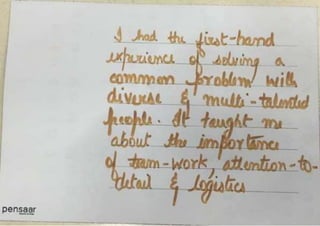 I had the first-hand
experience of solving a
common problem with
diverse & multi-talented
people. It taught me
about the importance
of team-work, attention-to-
detail & logistics
pensaar